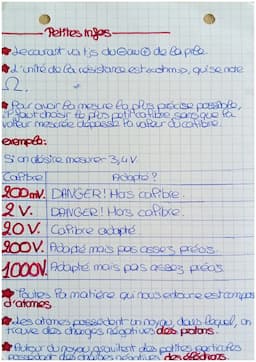 Petites infos
Le courant va tjs du ⊖ au ⊕ de la pile.
L'unité de la résistance est ohm, qui se note
Ω.
Pour avoir la mesure la plus précise possible,
il faut choisir le plus petit calibre, sans que la
valeur mesurée dépasse la valeur du calibre.
exemple:
Si on désire mesurer 3,4V.
Calibre Adapté?
200mV. DANGER! Hors calibre.
2V. DANGER! Hors calibre.
20V. Calibre adapté
200V. Adapté mais pas assez précis.
1000V. Adapté mais pas assez précis
Toutes la matière qui nous entoure est compos
d'atomes
Les atomes possèdent un noyau, dans lequel, on
trouve des charges négatives des protons.
Autour du noyau gravitent des petites particules
possédant des charges négatives des électrons